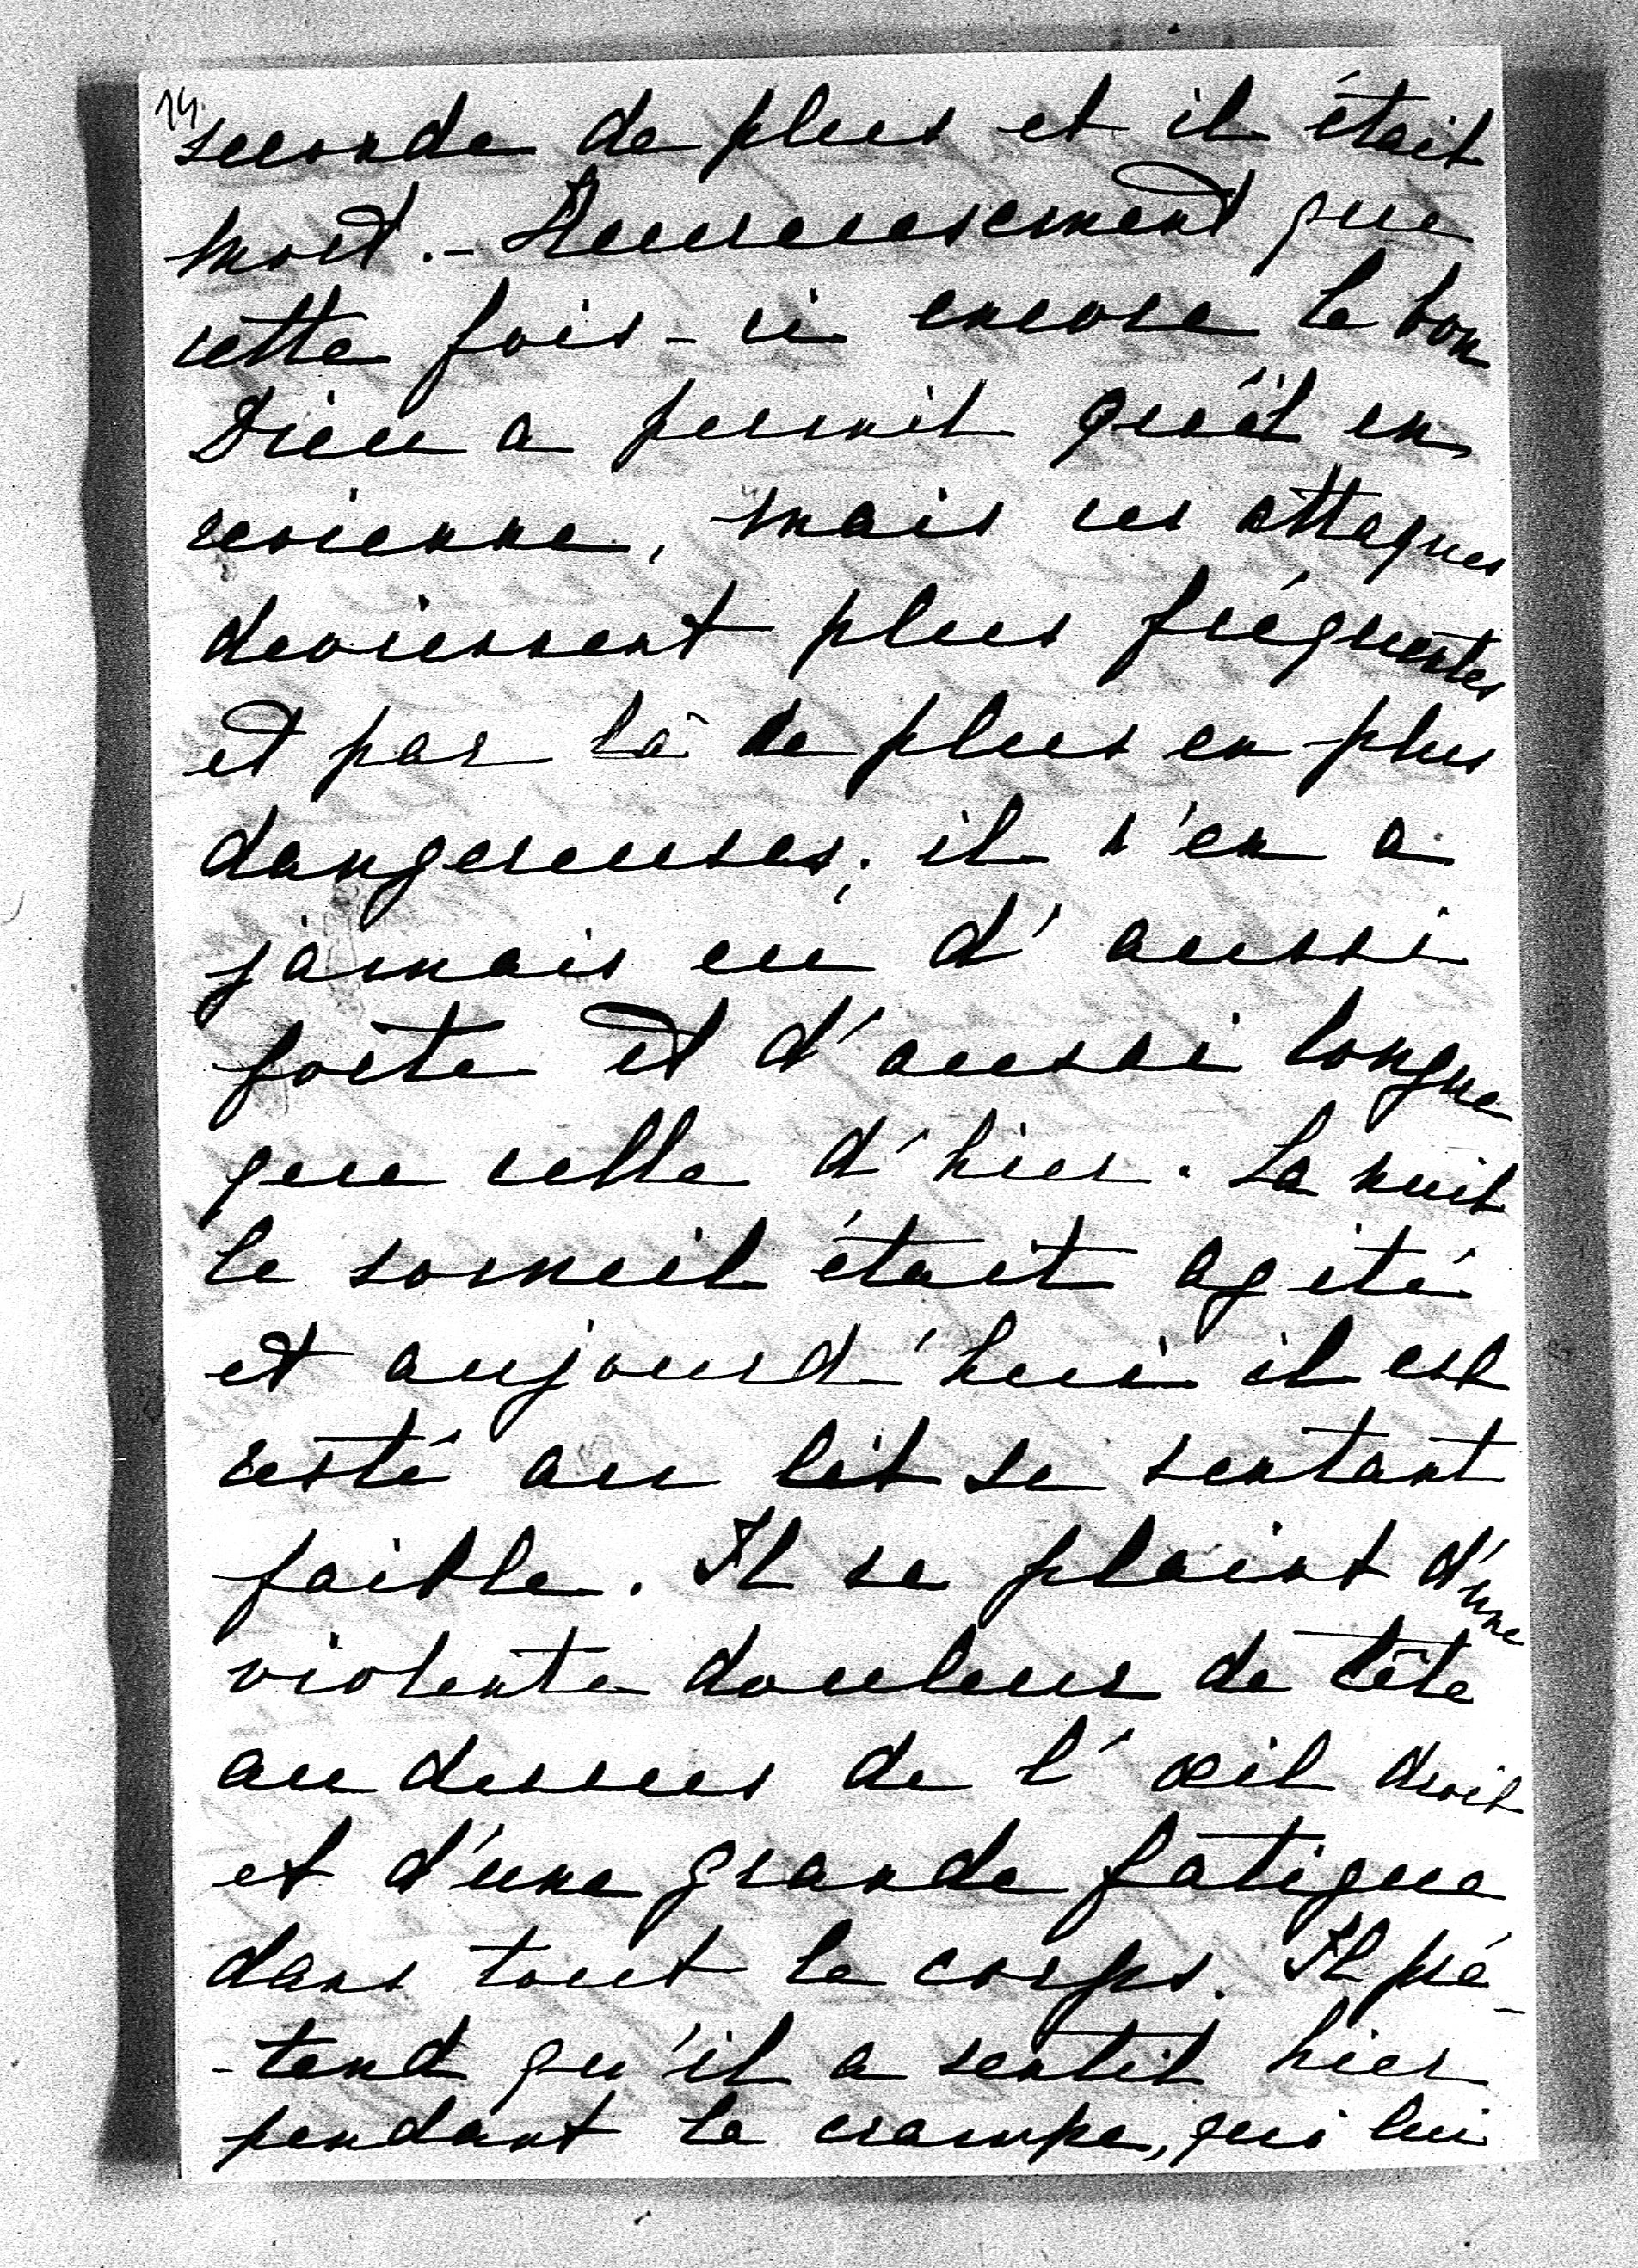 14.
seconde de plus et il était
mort. – Heureusement que
cette fois-ci encore le bon
Dieu a permit qu'il en
revienne, mais ces attaques
deviennent plus fréquentes
et par là de plus en plus
dangereuses; il n'en a
jamais eu d'aussi
forte et d'aussi longue
que celle d'hier. La nuit
le someil était agité
et aujourd'hui il est
resté au lit se sentant
faible. Il se plaint d'une
violente douleur de tête
au dessus de l'œil droit
et d'une grande fatigue
dans tout le corps. Il pré-
-tend qu'il a sentit hier
pendant la crampe, qui lui